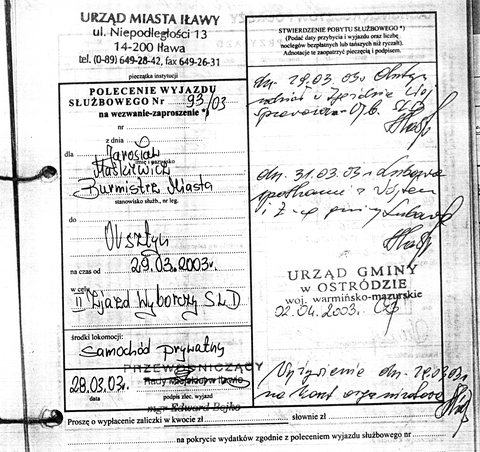 URZĄD MIASTA IŁAWY
ul. Niepodległości 13
14-200 Iława
tel. (0-89) 649-28-42, fax 649-26-31
pieczątka instytucji
POLECENIE WYJAZDU
SŁUŻBOWEGO Nr 93/03
na wezwanie-zaproszenie *)
nr
z dnia
dla Jarosław
imię i nazwisko
Maśkiewicz
Burmistrz Miasta
stanowisko służb., nr leg.
do
Olsztyn
na czas od 29.03.2003r.
w celu
II Zjazd Wyborczy SLD
środki lokomocji:
samochód prywatny
PRZEWODNICZĄCY
Rady Miejskiej w Iławie
28.03.03r.
data
podpis zlec. wyjazd
mgr Edward Bojko
STWIERDZENIE POBYTU SŁUŻBOWEGO *)
(Podać daty przybycia i wyjazdu oraz liczbę
noclegów bezpłatnych lub tańszych niż ryczałt).
Adnotacje te zaopatrzyć pieczęcią i podpisem.
dn. 29.03.03r. Olsztyn
udział w Zjeździe Woj.
SLD
dn. 31.03.03r. Lubawa
spotkanie z
i
URZĄD GMINY
w OSTRÓDZIE
woj. warmińsko-mazurskie
02.04.2003.
Wyżywienie dn. 29.03.03r
na koszt organizatora
Proszę o wypłacenie zaliczki w kwocie zł
słownie zł
na pokrycie wydatków zgodnie z poleceniem wyjazdu służbowego nr